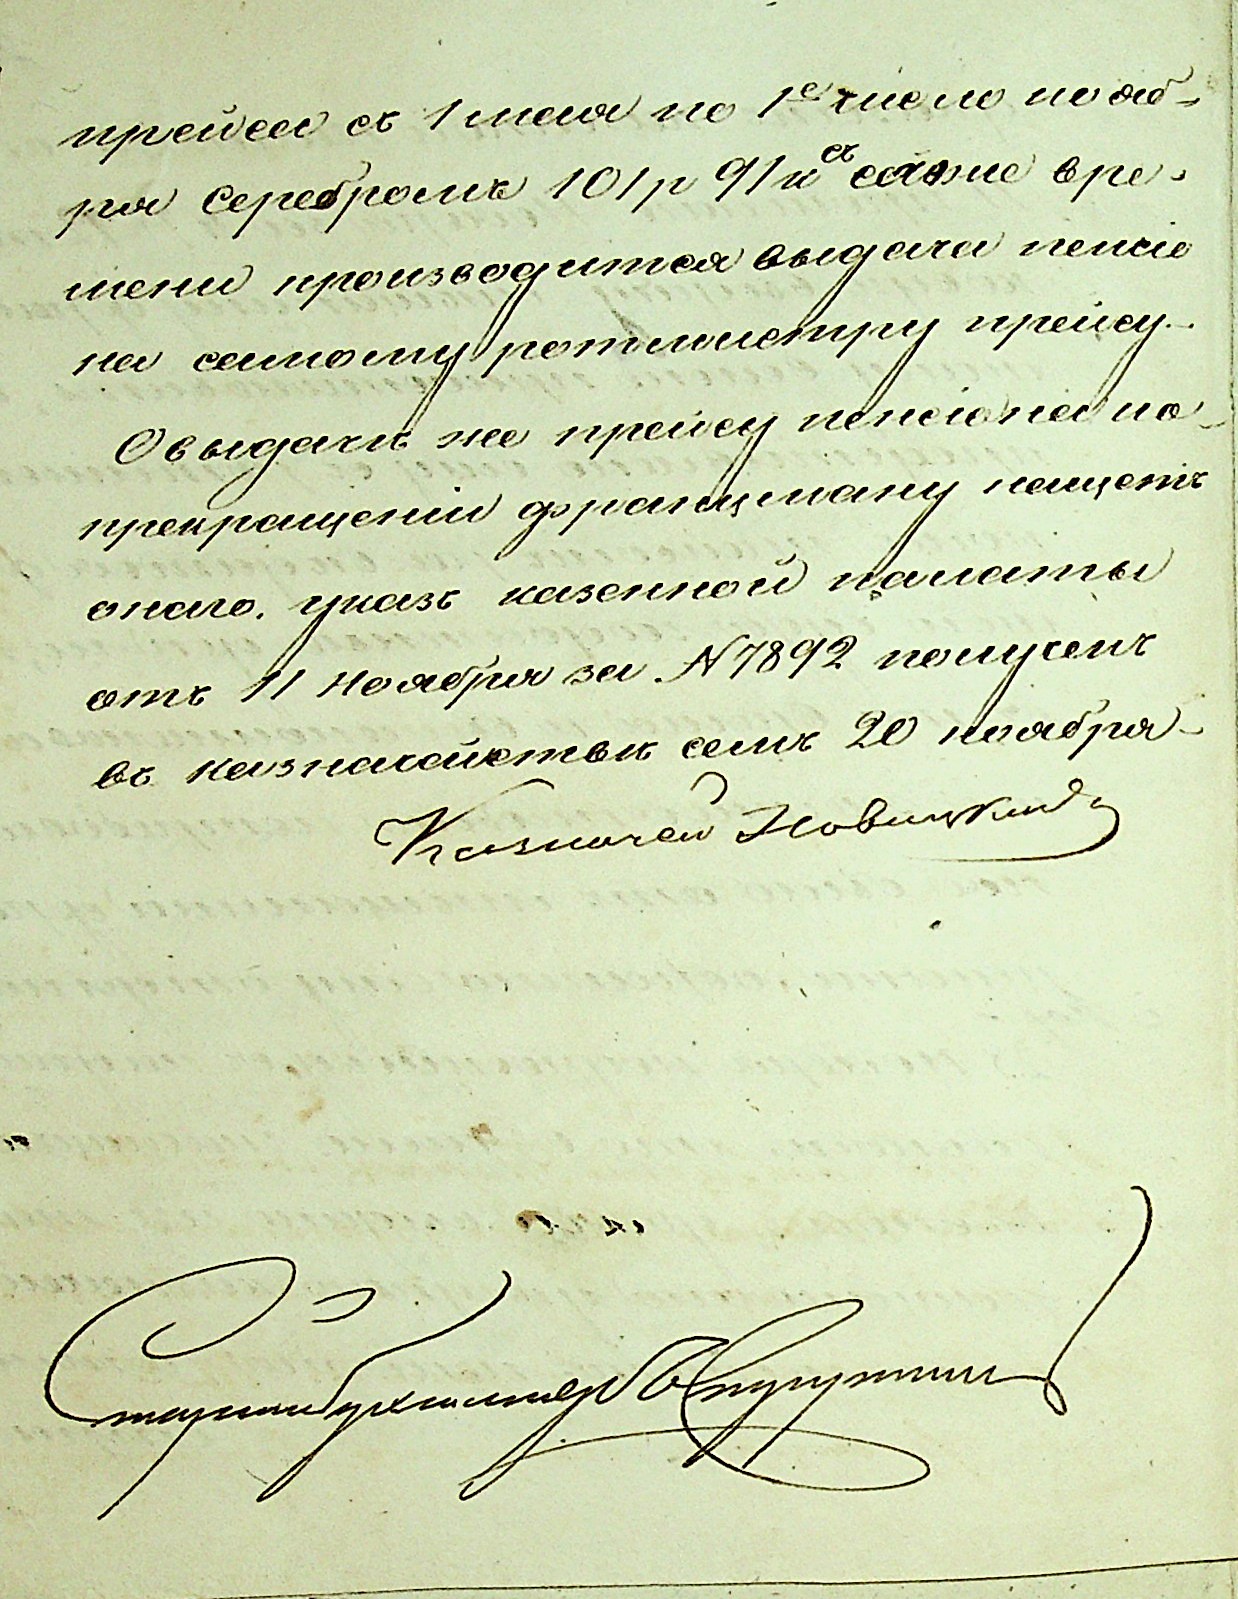 прейса съ 1 мая по 1е число нояб-
ря серебромъ 101 р 91 к съ сегоже вре-
мени производится выдача пенсіо
на самому ротмистру прейсу.
О выдачѣ же прейсу пенсіона и о
прекращеніи францману насчетъ
онаго. указъ казенной палаты
отъ 11 ноября за N 7892 полученъ
въ казначействѣ семъ 20 ноября
Казначей Новицкий
Старший бухгалтер